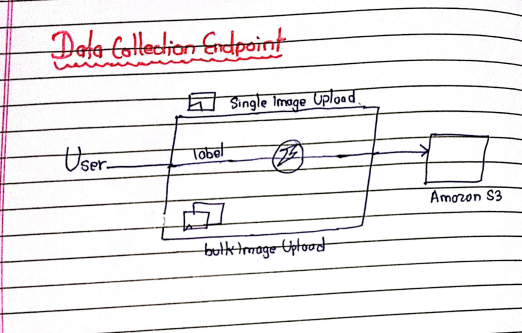 Data Collection Endpoint
Single Image Upload.
User
label
Amazon S3
bulk Image Upload